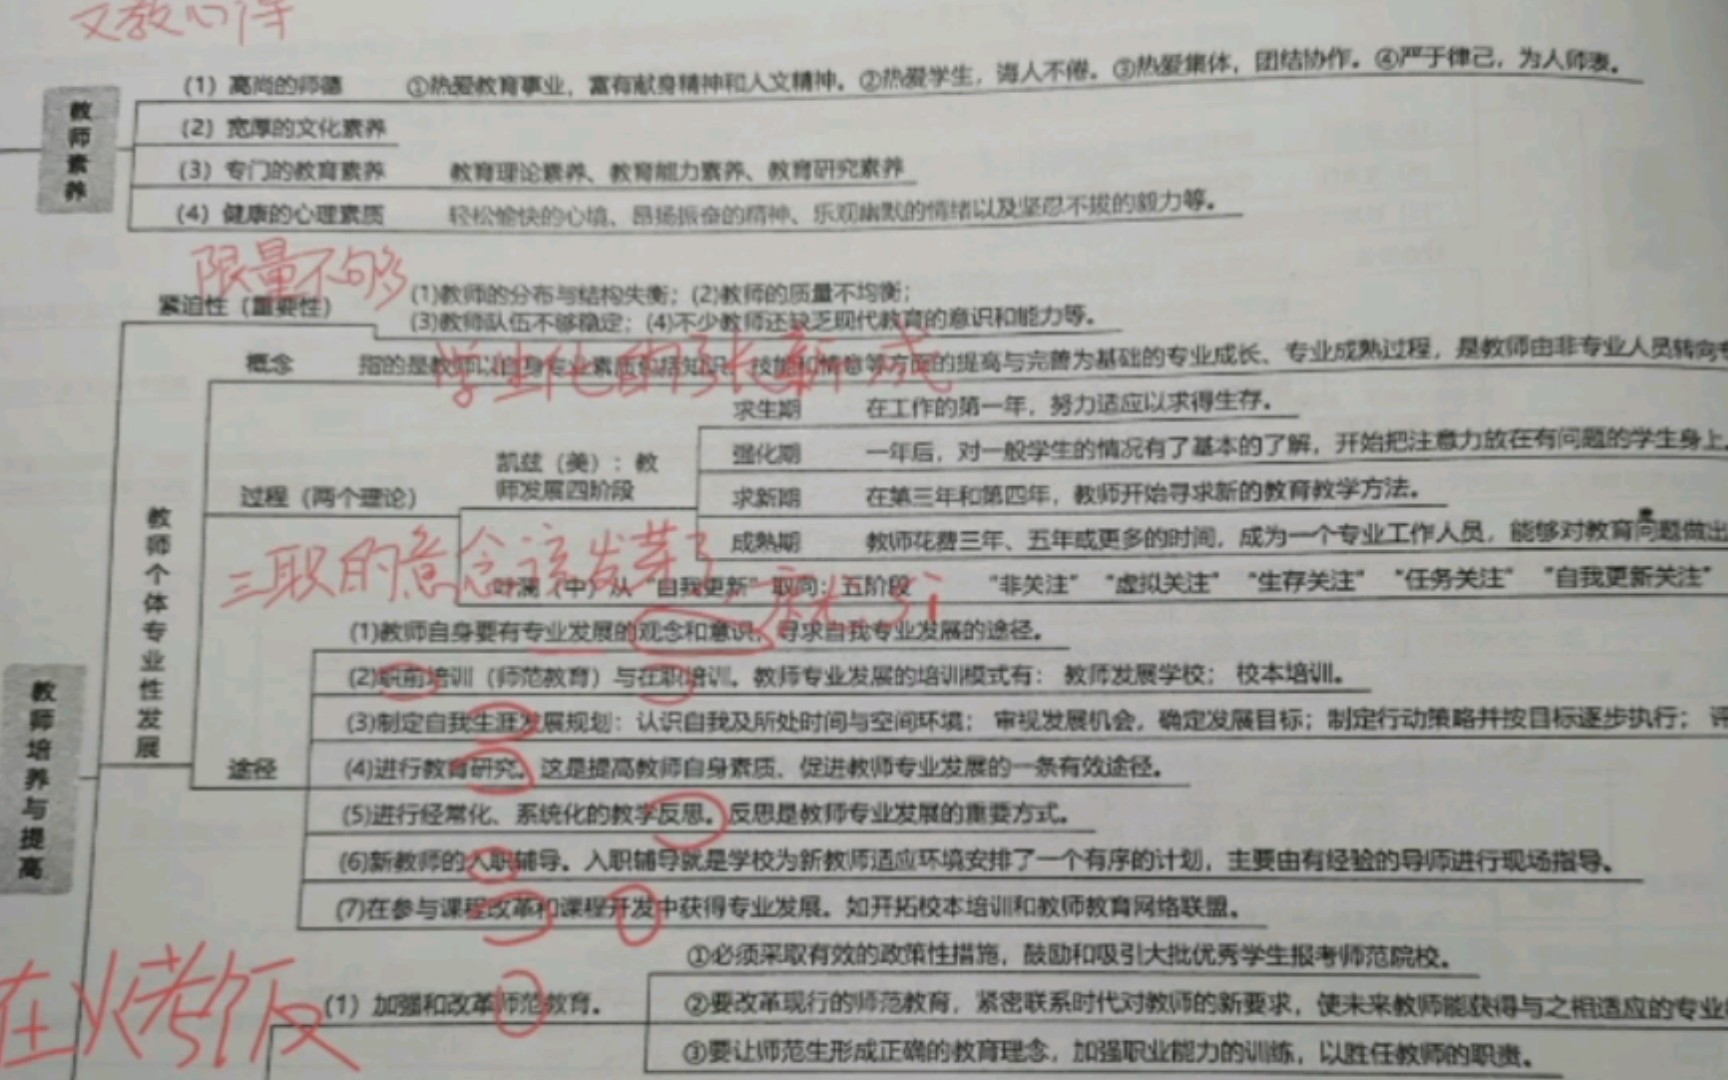 文教心得
教师素养
(1) 高尚的师德 ①热爱教育事业，富有献身精神和人文精神。②热爱学生，诲人不倦。③热爱集体，团结协作。④严于律己，为人师表。
(2) 宽厚的文化素养
(3) 专门的教育素养 教育理论素养、教育能力素养、教育研究素养
(4) 健康的心理素质 轻松愉快的心境、昂扬振奋的精神、乐观幽默的情绪以及坚忍不拔的毅力等。
限量不够
紧迫性（重要性） (1)教师的分布与结构失衡；(2)教师的质量不均衡；
(3)教师队伍不够稳定；(4)不少教师还缺乏现代教育的意识和能力等。
概念 指的是教师以自身专业素质包括知识、技能和情意等方面的提高与完善为基础的专业成长、专业成熟过程，是教师由非专业人员转向专
学生化的张新成
求生期 在工作的第一年，努力适应以求得生存。
凯兹（美）：教师发展四阶段
强化期 一年后，对一般学生的情况有了基本的了解，开始把注意力放在有问题的学生身上。
过程（两个理论）
求新期 在第三年和第四年，教师开始寻求新的教育教学方法。
教师个体专业性发展
成熟期 教师花费三年、五年或更多的时间，成为一个专业工作人员，能够对教育问题做出
三职的意念该发芽了
叶澜（中）从“自我更新”取向：五阶段 “非关注” “虚拟关注” “生存关注” “任务关注” “自我更新关注”
(1)教师自身要有专业发展的观念和意识，寻求自我专业发展的途径。
(2)职前培训（师范教育）与在职培训。教师专业发展的培训模式有：教师发展学校；校本培训。
教师培养与提高
(3)制定自我生涯发展规划：认识自我及所处时间与空间环境；审视发展机会，确定发展目标；制定行动策略并按目标逐步执行；评
途径
(4)进行教育研究。这是提高教师自身素质、促进教师专业发展的一条有效途径。
(5)进行经常化、系统化的教学反思。反思是教师专业发展的重要方式。
(6)新教师的入职辅导。入职辅导就是学校为新教师适应环境安排了一个有序的计划，主要由有经验的导师进行现场指导。
(7)在参与课程改革和课程开发中获得专业发展。如开拓校本培训和教师教育网络联盟。
在火烤饭
(1) 加强和改革师范教育。
①必须采取有效的政策性措施，鼓励和吸引大批优秀学生报考师范院校。
②要改革现行的师范教育，紧密联系时代对教师的新要求，使未来教师能获得与之相适应的专业
③要让师范生形成正确的教育理念，加强职业能力的训练，以胜任教师的职责。